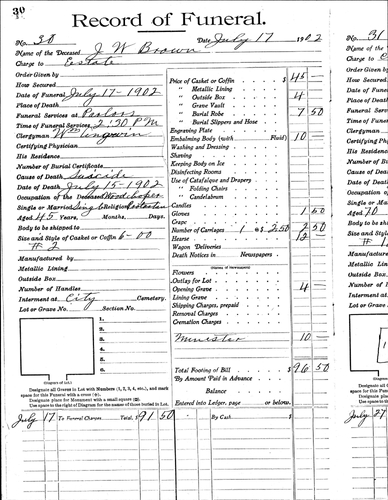 30
Record of Funeral.
No. 30 Date July 17 1902
Name of the Deceased J W Brown
Charge to Estate
Order Given by
How Secured
Date of Funeral July 17-1902
Place of Death
Funeral Services at Parlors
Time of Funeral Services 2:30 PM
Clergyman Wm
Certifying Physician
His Residence
Number of Burial Certificate
Cause of Death Suicide
Date of Death July 15-1902
Occupation of the Deceased Woodchoper
Single or Married Single Religion
Aged 45 Years, Months, Days
Body to be shipped to
Size and Style of Casket or Coffin 6-00
# 2
Manufactured by
Metallic Lining
Outside Box
Number of Handles
Interment at City Cemetery.
Lot or Grave No. Section No.
1.
2.
3.
4.
5.
6.
(Diagram of Lot.)
Designate all Graves in Lot with Numbers (1, 2, 3, 4, etc.), and mark
space for this Funeral with a cross (+).
Designate place for Monument with a small square (□).
Use space to the right of Diagram for the names of those buried in Lot.
Price of Casket or Coffin $ 45 —
" Metallic Lining
" Outside Box 4 —
" Grave Vault
" Burial Robe 7 50
" Burial Slippers and Hose
Engraving Plate
Embalming Body (with Fluid) 10 —
Washing and Dressing
Shaving
Keeping Body on Ice
Disinfecting Rooms
Use of Catafalque and Drapery
" Folding Chairs
" Candelabrum
Candles
Gloves 1 50
Crape
Number of Carriages 1 @ $ 2.50 2 50
Hearse 12 —
Wagon Deliveries
Death Notices in Newspapers
Flowers
Outlay for Lot
Opening Grave 4 —
Lining Grave
Shipping Charges, prepaid
Removal Charges
Cremation Charges
Minister 10 —
Total Footing of Bill $ 96 50
By Amount Paid in Advance
Balance
Entered into Ledger, page or below.
July 17 To Funeral Charges Total, $ 91 50 By Cash $
31
No.
Name of the
Charge to
Order Given
How Secured
Date of Fun
Place of De
Funeral Ser
Time of Fun
Clergyman
Certifying P
His Reside
Number of B
Cause of De
Date of Dea
Occupation o
Single or Ma
Aged 70
Body to be s
Size and Styl
Manufacture
Metallic Lin
Outside Box
Number of H
Interment at
Lot or Grave
(Diag
Designate
space for this
Designate
Use space
July 27